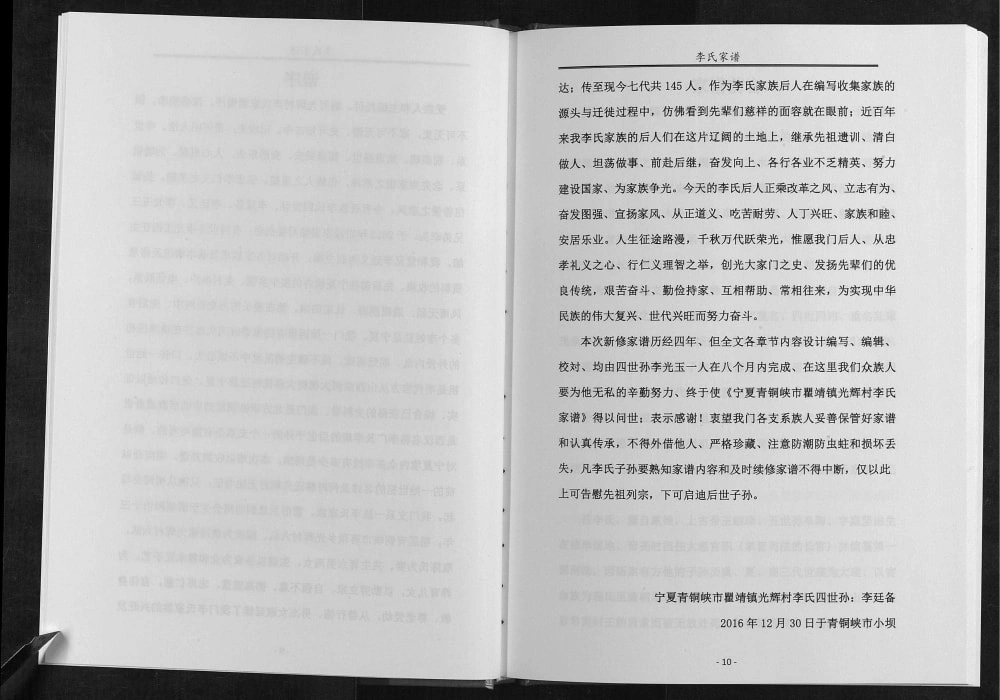 李氏家谱
达；传至现今七代共 145 人。作为李氏家族后人在编写收集家族的
源头与迁徙过程中，仿佛看到先辈们慈祥的面容就在眼前；近百年
来我李氏家族的后人们在这片辽阔的土地上，继承先祖遗训、清白
做人、坦荡做事、前赴后继，奋发向上、各行各业不乏精英、努力
建设国家、为家族争光。今天的李氏后人正乘改革之风、立志有为、
奋发图强、宣扬家风、从正道义、吃苦耐劳、人丁兴旺、家族和睦、
安居乐业。人生征途路漫，千秋万代跃荣光，惟愿我门后人、从忠
孝礼义之心、行仁义理智之举，创光大家门之史、发扬先辈们的优
良传统，艰苦奋斗、勤俭持家、互相帮助、常相往来，为实现中华
民族的伟大复兴、世代兴旺而努力奋斗。
本次新修家谱历经四年、但全文各章节内容设计编写、编辑、
校对、均由四世孙李光玉一人在八个月内完成、在这里我们众族人
要为他无私的辛勤努力、终于使《宁夏青铜峡市瞿靖镇光辉村李氏
家谱》得以问世；表示感谢！衷望我们各支系族人妥善保管好家谱
和认真传承，不得外借他人、严格珍藏、注意防潮防虫蛀和损坏丢
失，凡李氏子孙要熟知家谱内容和及时续修家谱不得中断，仅以此
上可告慰先祖列宗，下可启迪后世子孙。
宁夏青铜峡市瞿靖镇光辉村李氏四世孙：李廷备
2016 年 12 月 30 日于青铜峡市小坝
- 10 -